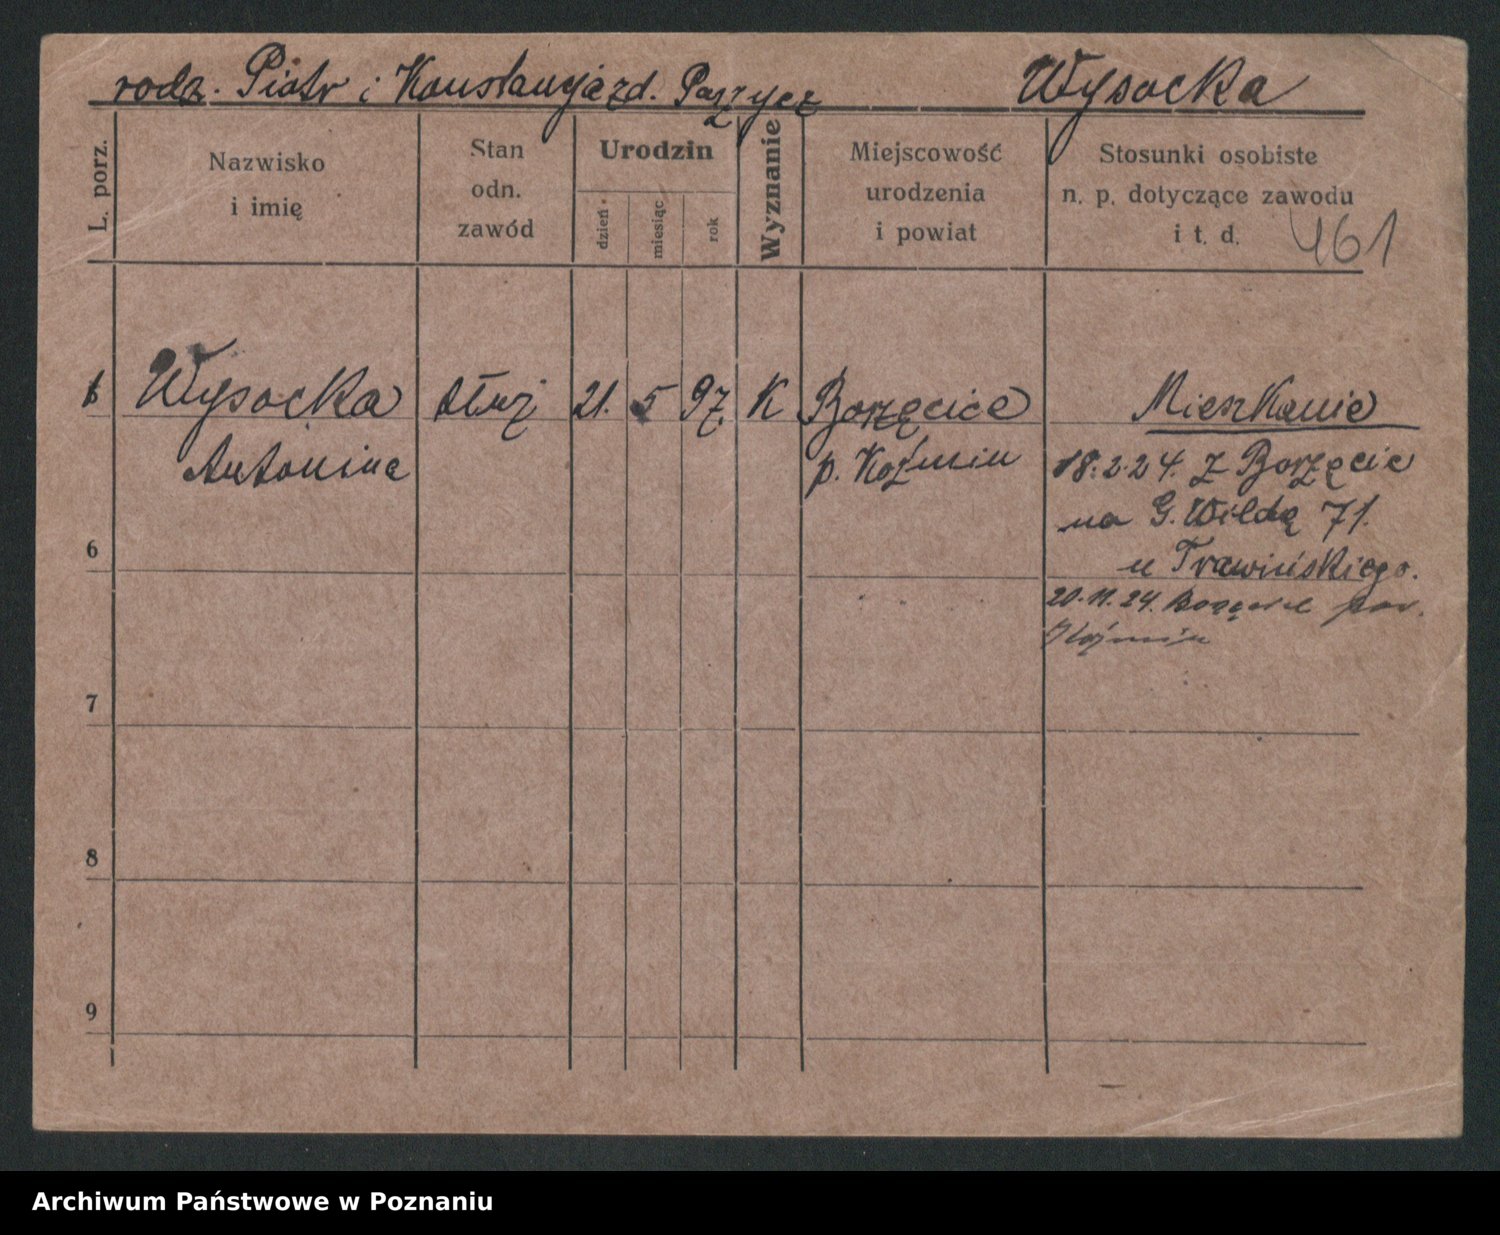 rodz. Piotr i Konstancja zd. Parzycz
Wysocka
L. porz.
Nazwisko
i imię
Stan
odn.
zawód
Urodzin
dzień
miesiąc
rok
Wyznanie
Miejscowość
urodzenia
i powiat
Stosunki osobiste
n. p. dotyczące zawodu
i t. d.
461
Wysocka służ 21. 5 97. K Borzęcice
Antonina
p. Koźmin
Mieszkanie
18.2.24. z Borzęcic
na G. Wildę 71.
u Trawińskiego.
20.11.24. pow.
Koźmin
6
7
8
9
Archiwum Państwowe w Poznaniu